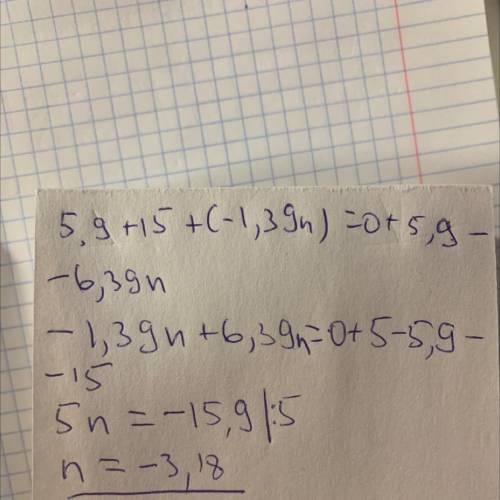 5,9+15+(-1,39n)=0+5,9-
-6,39n
-1,39n+6,39n=0+5-5,9-
-15
5n=-15,9|:5
n=-3,18